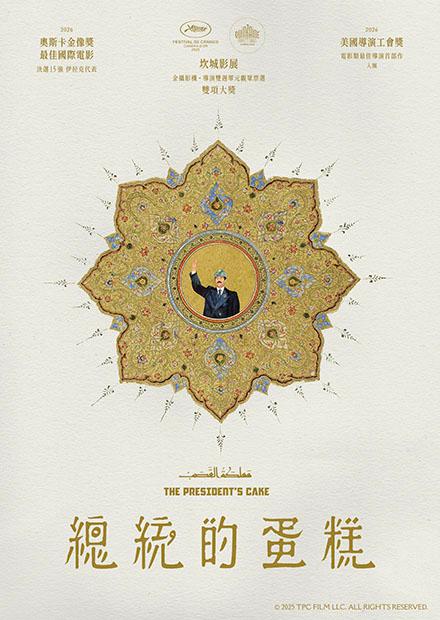 2026
奧斯卡金像獎
最佳國際電影
決選15強 伊拉克代表
FESTIVAL DE CANNES
CAMÉRA D'OR
2025
坎城影展
金攝影機・導演雙週單元觀眾票選
雙項大獎
2026
美國導演工會獎
電影類最佳導演首部作
入圍
مملكة القصب
THE PRESIDENT'S CAKE
總統的蛋糕
© 2025 TPC FILM LLC. ALL RIGHTS RESERVED.